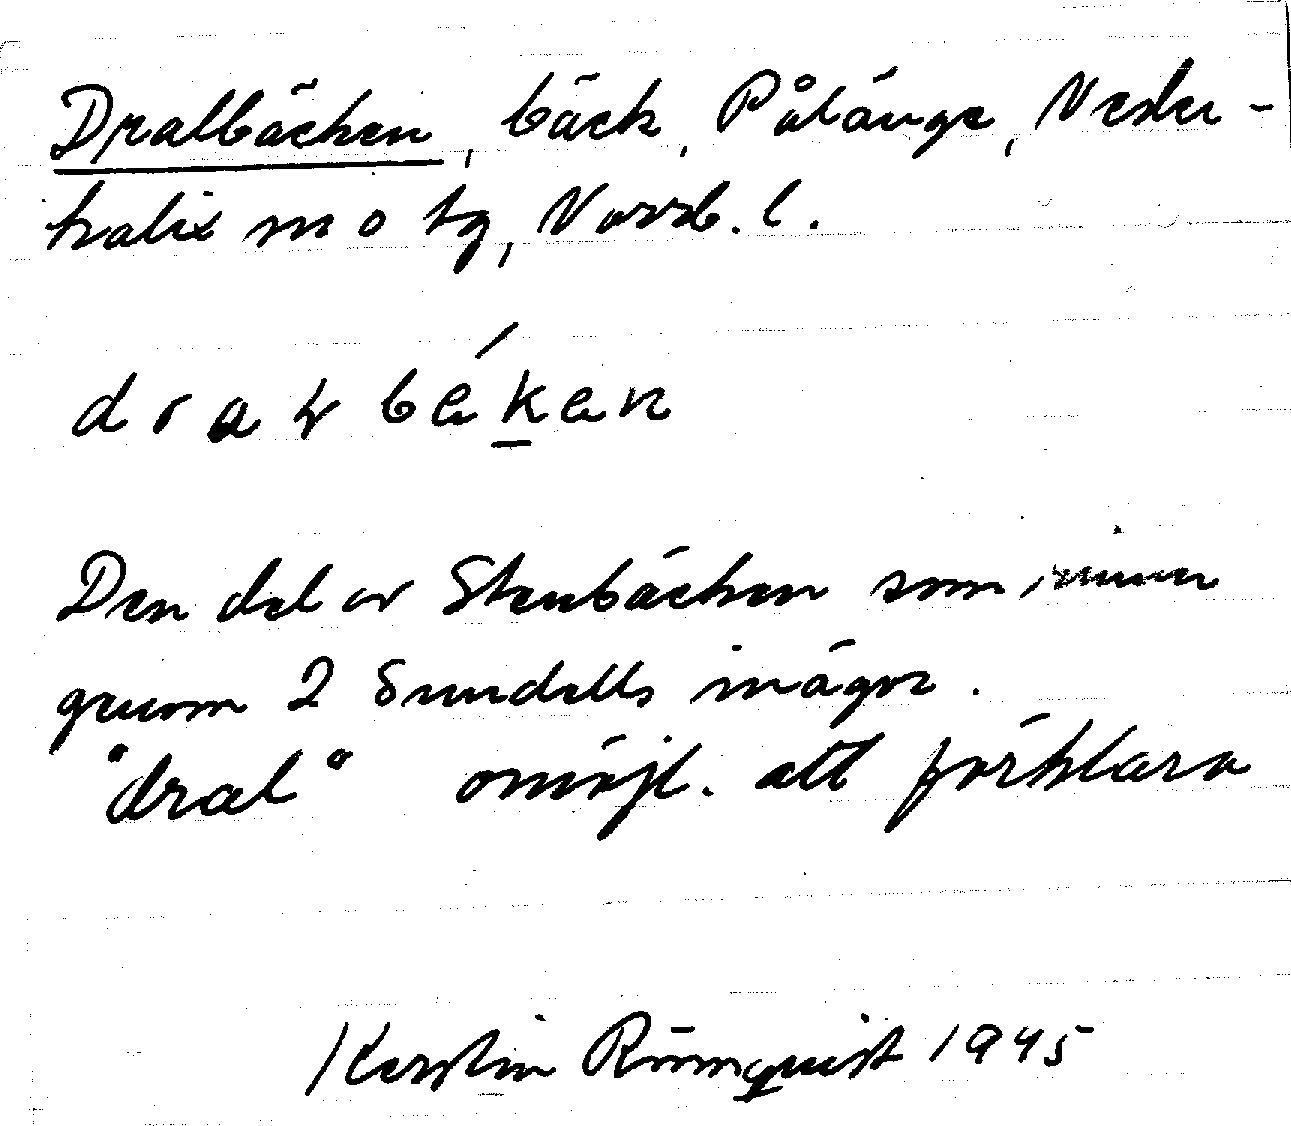 Dralbäcken, bäck, Pålänge, Neder-
kalix sn o tg, Norrb. l.
Den del av Stenbäcken som rinner
genom 2 Sundells inägor.
"dral" omöjl. att förklara
Kerstin Rönnquist 1945